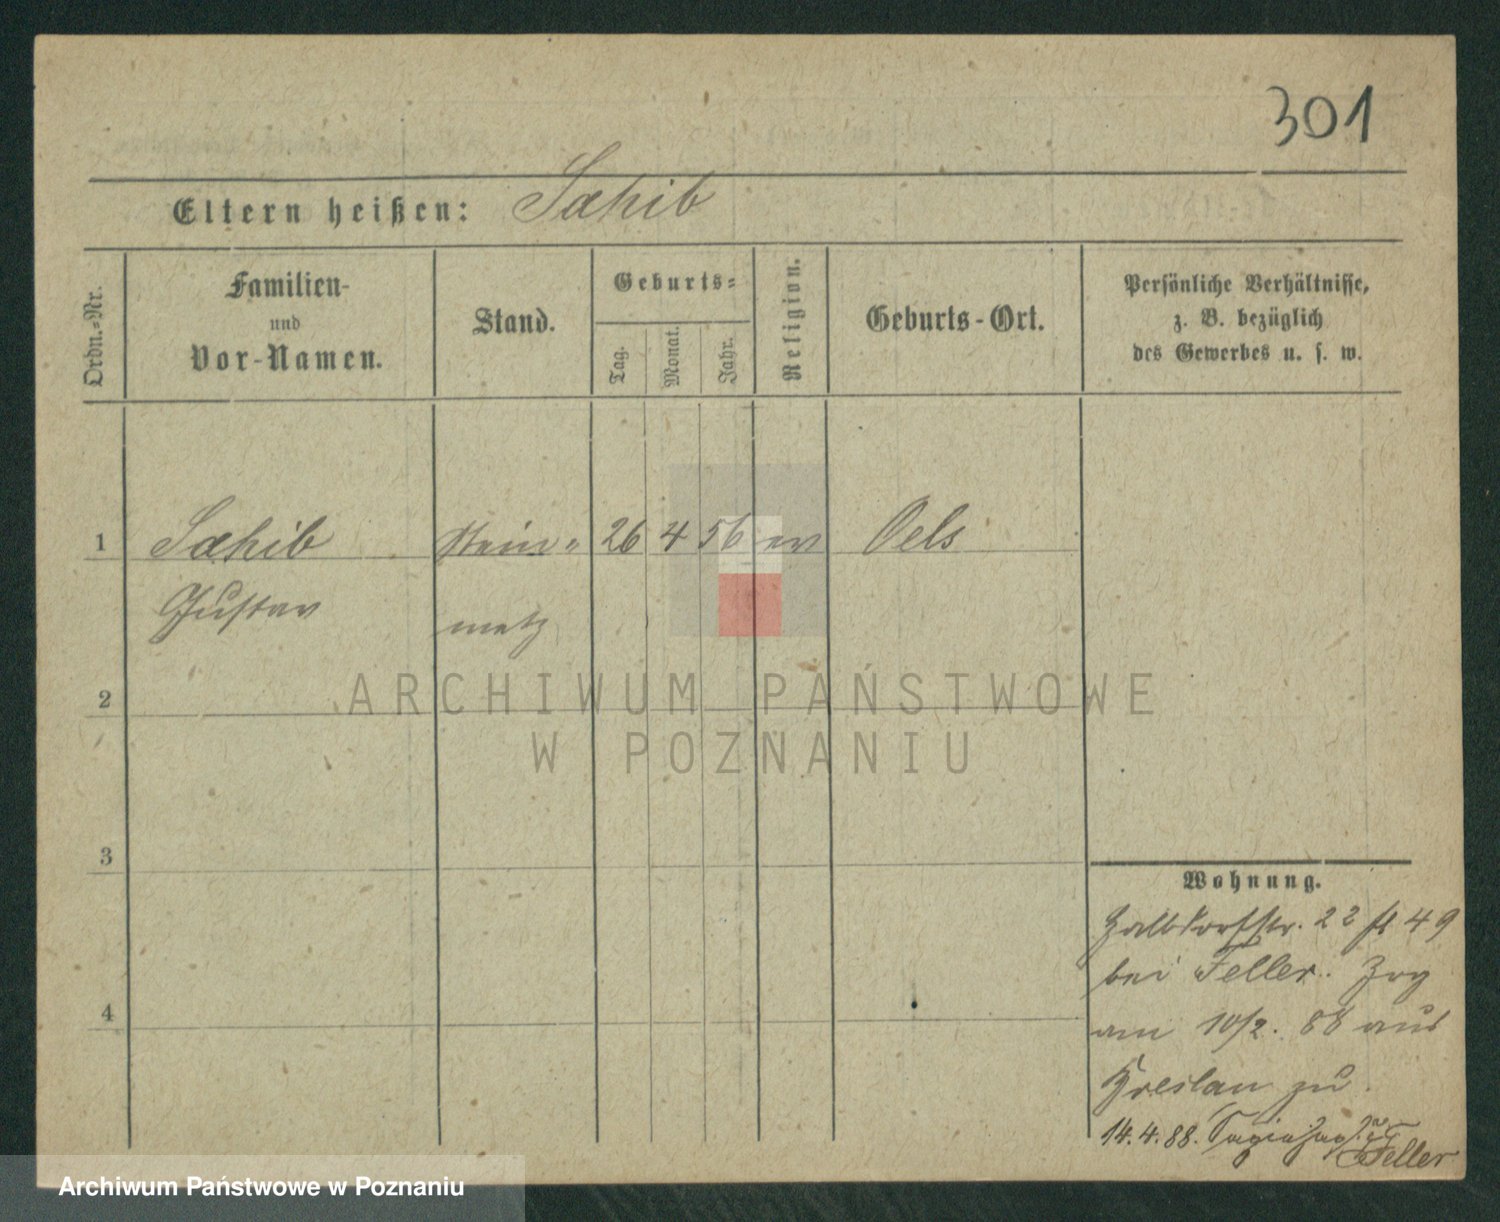 301
Eltern heißen: Sachib
Ordn.-Nr.
Familien-
und
Vor-Namen.
Stand.
Geburts-
Tag.
Monat.
Jahr.
Religion.
Geburts-Ort.
Persönliche Verhältnisse,
z. B. bezüglich
des Gewerbes u. s. w.
1 Sachib Stein- 26 4 56 ev Oels
Gustav metz
2
3
4
ARCHIWUM PAŃSTWOWE
W POZNANIU
Wohnung.
Halbdorfstr. 22
bei Feller. Zog
am 10/2. 88 aus
Breslau zu.
14.4.88.
Feller
Archiwum Państwowe w Poznaniu